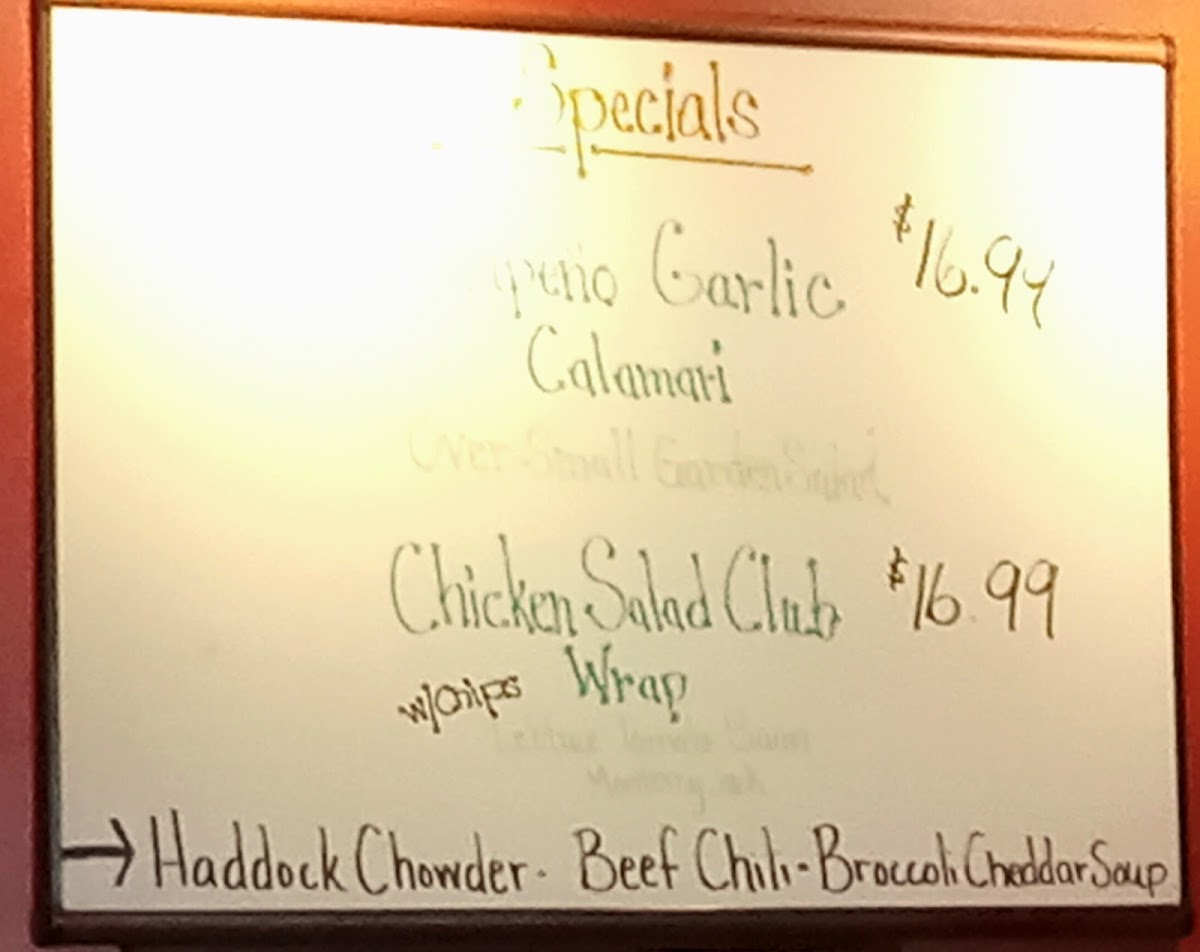 Specials
Garlic $16.99
Calamari
Over Small Garden Salad
Chicken Salad Club $16.99
w/Chips Wrap
Lettuce Tomato
Monterey
→ Haddock Chowder · Beef Chili - Broccoli Cheddar Soup